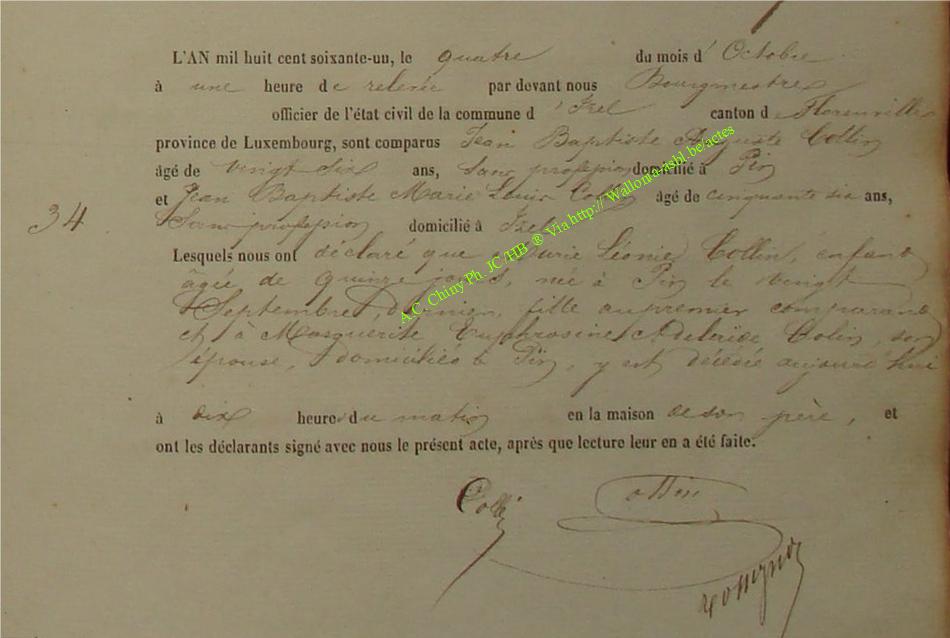 L'AN mil huit cent soixante-un, le quatre du mois d' Octobre
à une heure de relevée par devant nous Bourgmestre
officier de l'état civil de la commune d 'Izel canton de Florenville
province de Luxembourg, sont comparus Jean Baptiste Auguste Collin
âgé de vingt six ans, Sans profession domicilié à Pin
et Jean Baptiste Marie Louis âgé de cinquante six ans,
34
Sans profession domicilié à Izel
Lesquels nous ont déclaré que Marie Léonie Collin, enfant
âgée de quinze jours, née à Pin le vingt
Septembre, dernier, fille au premier comparant
et à Marguerite Euphrosine Adelaide Colin, son
épouse, domiciliés à Pin, y est décédée aujourd'hui
à dix heures du matin en la maison de son père, et
ont les déclarants signé avec nous le présent acte, après que lecture leur en a été faite.
Collin Collin
A.C. Chiny Ph. JC/HB ® Via http://Wallonia-asbl.be/actes